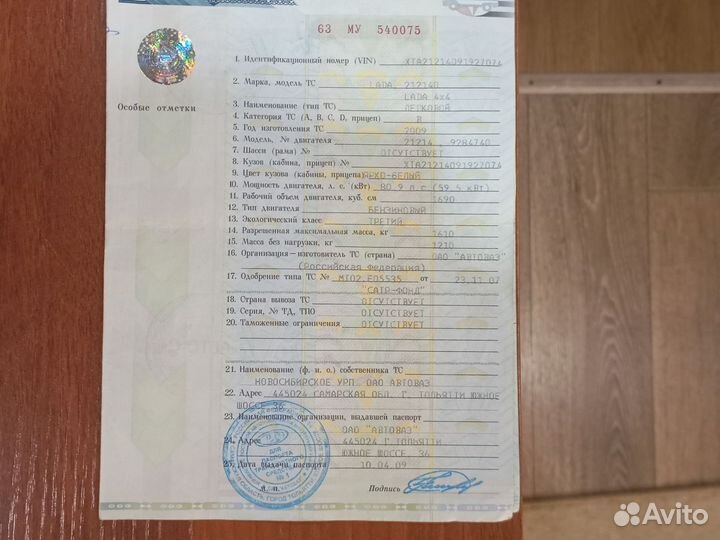 63 МУ 540075
1. Идентификационный номер (VIN) ХТА21214091927074
2. Марка, модель ТС LADA, 212140
LADA 4x4
Особые отметки
3. Наименование (тип ТС) ЛЕГКОВОЙ
4. Категория ТС (А, В, С, D, прицеп) В
5. Год изготовления ТС 2009
6. Модель, № двигателя 21214 , 9284740
7. Шасси (рама) № ОТСУТСТВУЕТ
8. Кузов (кабина, прицеп) № ХТА21214091927074
9. Цвет кузова (кабины, прицепа) ЯРКО-БЕЛЫЙ
10. Мощность двигателя, л. с. (кВт) 80.9 л.с (59.5 кВт)
11. Рабочий объем двигателя, куб. см 1690
12. Тип двигателя БЕНЗИНОВЫЙ
13. Экологический класс ТРЕТИЙ
14. Разрешенная максимальная масса, кг 1610
15. Масса без нагрузки, кг 1210
16. Организация-изготовитель ТС (страна) ОАО "АВТОВАЗ"
(Российская Федерация)
17. Одобрение типа ТС № МТ02.Е05535 от 23.11.07
"САТР-ФОНД"
18. Страна вывоза ТС ОТСУТСТВУЕТ
19. Серия, № ТД, ТПО ОТСУТСТВУЕТ
20. Таможенные ограничения ОТСУТСТВУЕТ
21. Наименование (ф. и. о.) собственника ТС
НОВОСИБИРСКОЕ УРП ОАО АВТОВАЗ
22. Адрес 445024 САМАРСКАЯ ОБЛ. Г. ТОЛЬЯТТИ ЮЖНОЕ
ШОССЕ 36
23. Наименование организации, выдавшей паспорт
ОАО "АВТОВАЗ"
24. Адрес 445024 Г. ТОЛЬЯТТИ
ЮЖНОЕ ШОССЕ, 36
25. Дата выдачи паспорта 10.04.09
М. П. Подпись
ДЛЯ
ПАСПОРТА
ТРАНСПОРТНОГО
СРЕДСТВА
№ 1
Avito